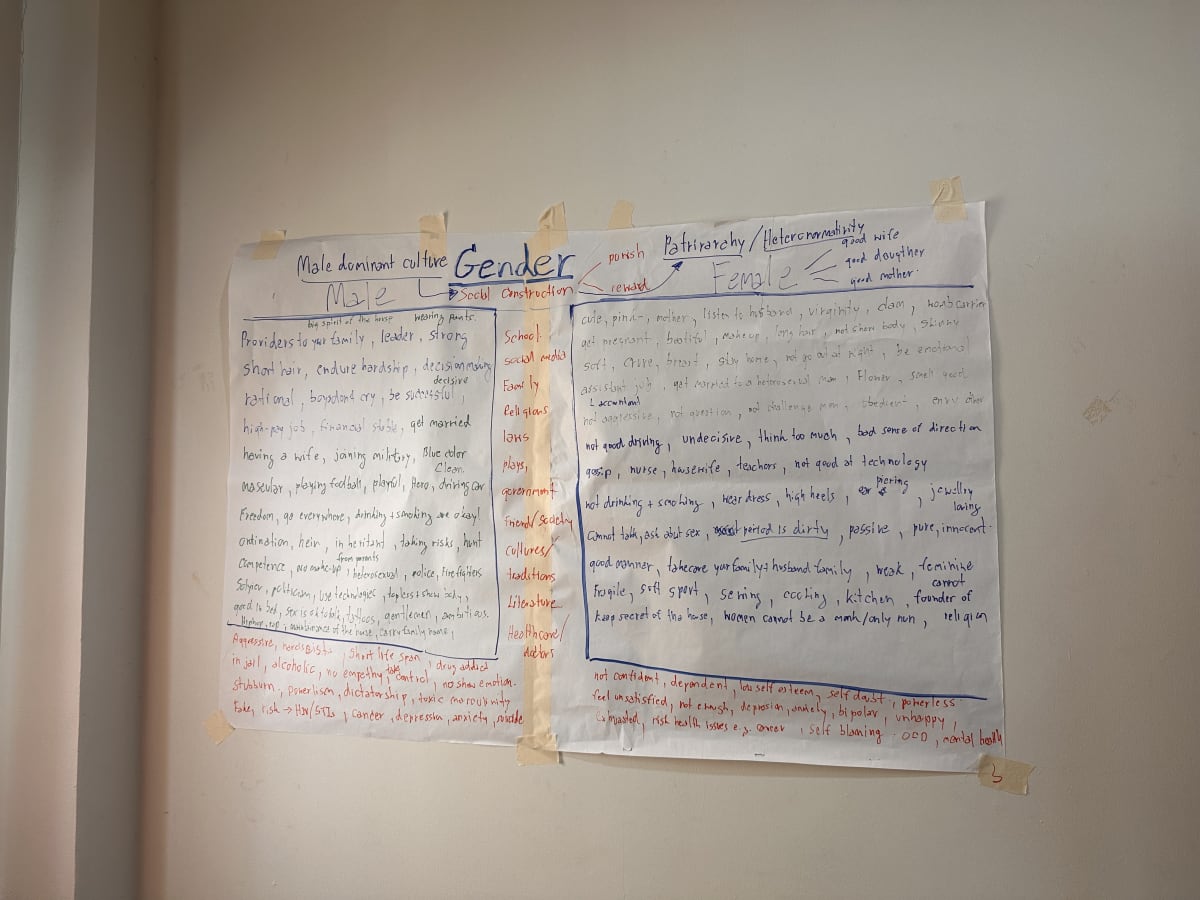 Male dominant culture
Gender
Patrirarchy / Heteronormativity
punish
reward
Social Construction
good wife
good dougther
good mother.
Male
big spirit of the house wearing pants.
Providers to your family, leader, strong
short hair, endure hardship, decision making
decisive
rational, boys dont cry, be successful,
high-pay job, financial stable, get married
having a wife, joining military, Blue color
Clean.
mascular, playing football, playful, Hero, driving car
Freedom, go everywhere, drinking + smoking are okay!
ordination, heir, in heritant, taking risks, hunt
from parents
Competence, no make-up, heterosexual, police, Firefighters
politician, use technologies, topless + show body,
good in bed, sex is oktotalk, tattoos, gentlemen, ambitious.
maintainance of the house, carry family name,
School
social media
Family
Religions
laws
plays,
government
Friend/Society
cultures/
traditions
Literature
Healthcare/
doctors
Female
cute, pink, mother, listen to husband, virginity, dam, womb carrier
get pregnant, beatiful, makeup, long hair, not show body, skinny
soft, curve, breast, stay home, not go out at night, be emotional
assistant job, get married to a heterosexual man, Flower, smell good
accountant
not aggressive, not question, not challenge men, obedient, envy other
not good driving, undecisive, think too much, bad sense of direction
gossip, nurse, housewife, teachers, not good at technology
not drinking + smoking, wear dress, high heels, ear piering, jewellry
loving
Cannot talk, ask about sex, period is dirty, passive, pure, innocent
good manner, takecare your family + husband family, weak, feminine
Fragile, soft sport, sewing, cooking, kitchen, cannot founder of
keep secret of the house, women cannot be a monk/only nun, religion
Aggressive, narcissist, short life span, drug addicd
in jail, alcoholic, no empethy, take control, no show emotion.
stubburn, powerlism, dictatorship, toxic mascurinity
Fake, risk → HIV/STIs, cancer, depression, anxiety, suicide
not confident, dependent, low self esteem, self daubt, powerless
feel unsatisfied, not enough, depression, anxiety, bipolar, unhappy,
risk health issues e.g. cancer, self blaming. OCD, mental health